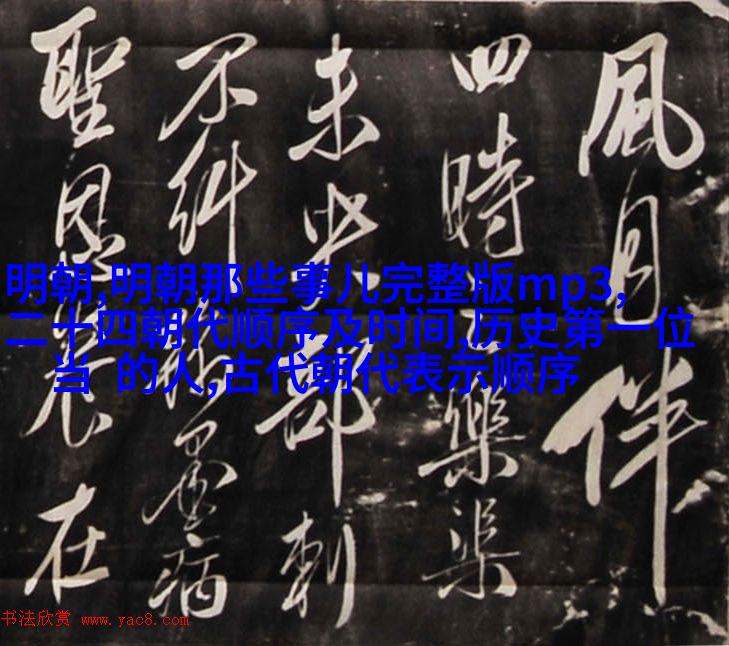 風月伴
四時樂
未部刺
不糾墨病
聖恩在
明朝,明朝那些事儿完整版mp3,
二十四朝代顺序及时间,历史第一位
当 的人,古代朝代表示顺序
书法欣赏 www.yac8.com